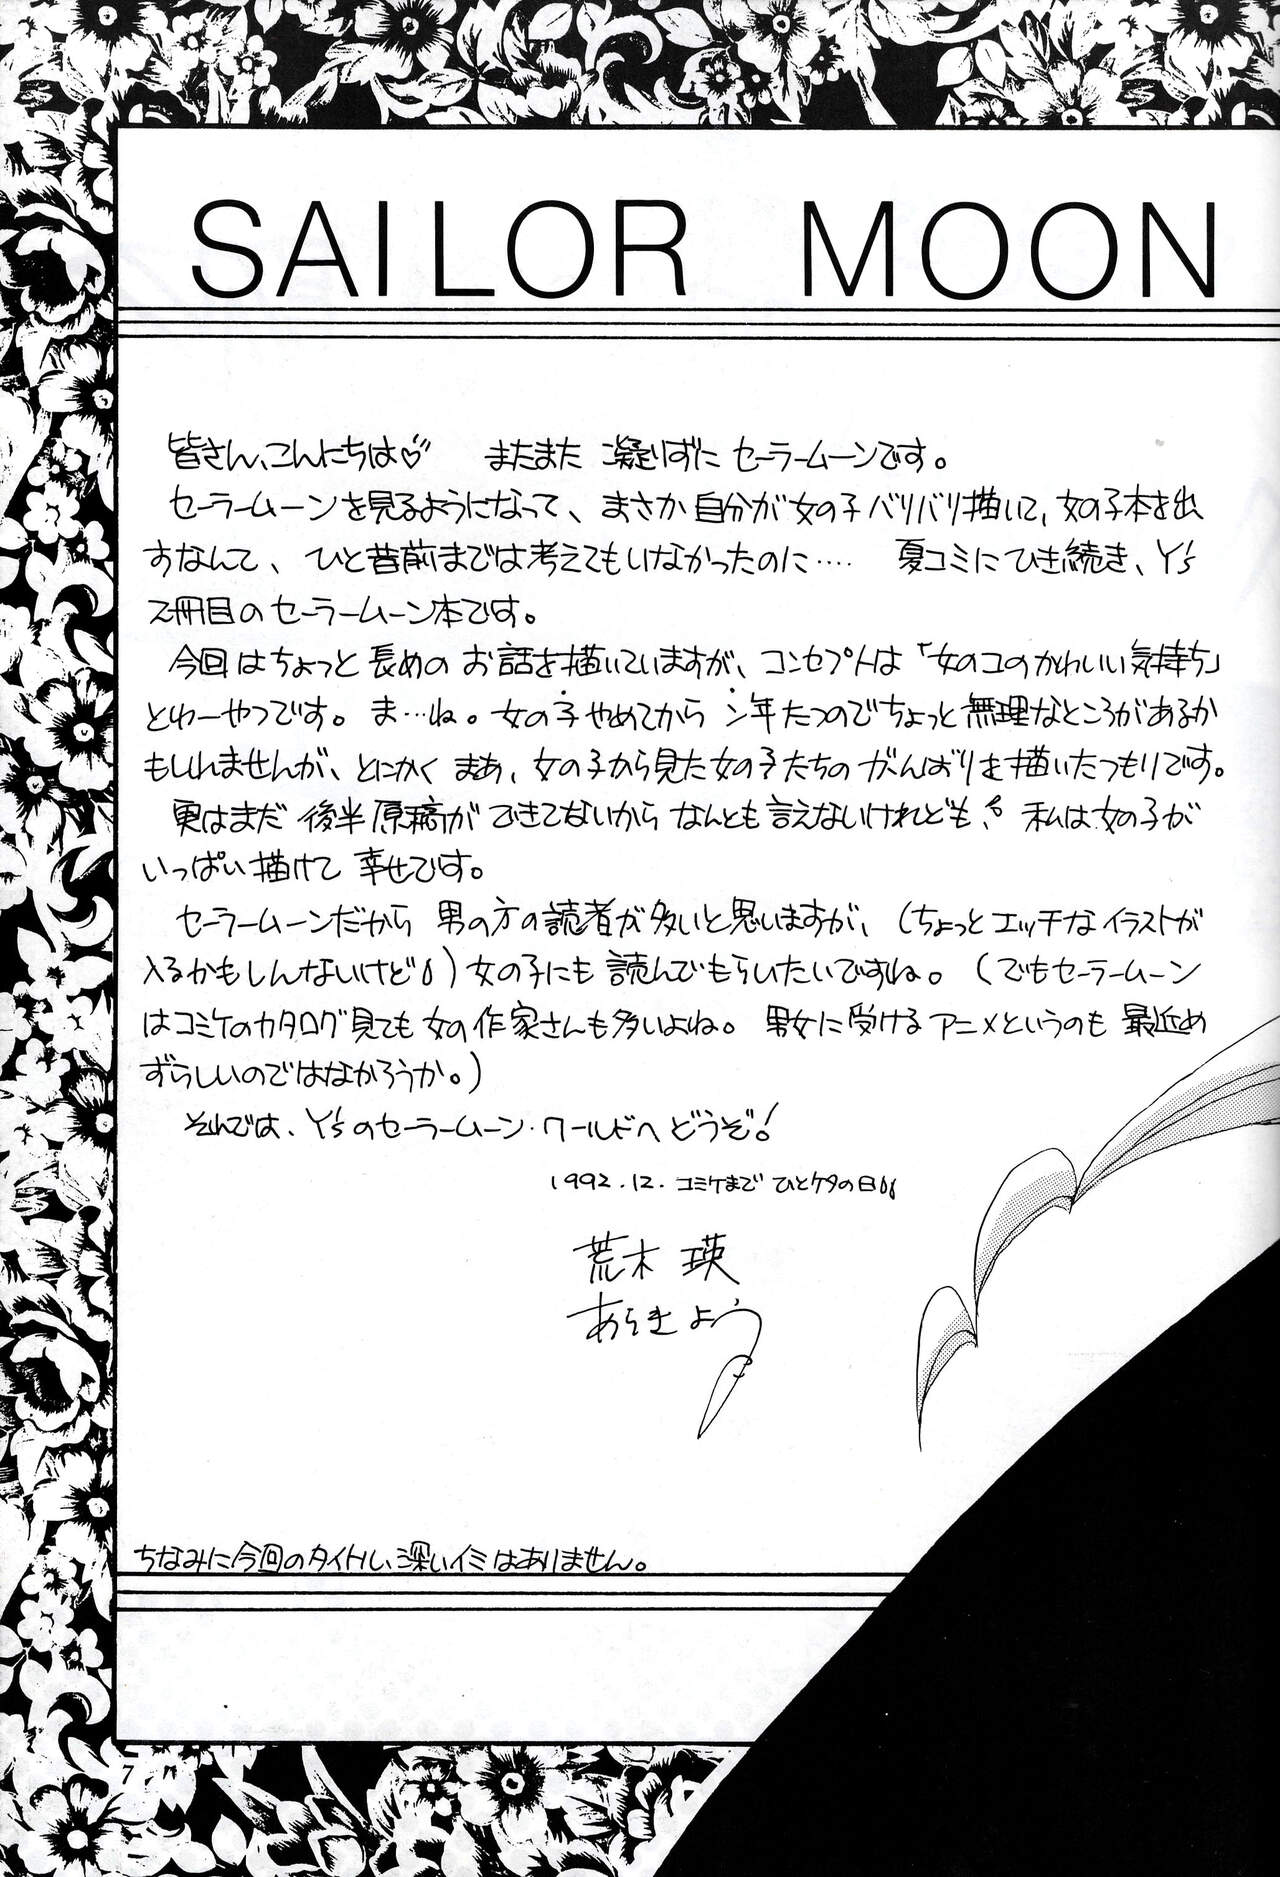 SAILOR MOON
皆さん、こんにちは♡ またまた 凝りずに セーラームーンです。
セーラームーンを見るようになって、まさか自分が女の子バリバリ描いて、女の子本を出
すなんて、ひと昔前までは考えてもいなかったのに‥‥ 夏コミにひき続き、Y's
2冊目のセーラームーン本です。
今回はちょっと長めのお話を描いていますが、コンセプトは「女のコのかわいい気持ち」
とゆーやつです。ま…ね。女の子やめてからン年たつのでちょっと無理なところがあるか
もしれませんが、とにかくまあ、女の子から見た女の子たちのがんばりを描いたつもりです。
実はまだ後半原稿ができてないからなんとも言えないけれども、私は女の子が
いっぱい描けて幸せです。
セーラームーンだから男の方の読者が多いと思いますが、(ちょっとエッチなイラストが
入るかもしんないけど)女の子にも読んでもらいたいですね。(でもセーラームーン
はコミケのカタログ見ても女の作家さんも多いよね。男女に受けるアニメというのも最近め
ずらしいのではなかろうか。)
それでは、Y'sのセーラームーン・ワールドへどうぞ!
1992.12.コミケまでひとケタの日
荒木 瑛
あらき よう
ちなみに今回のタイトル、深いイミはありません。
7